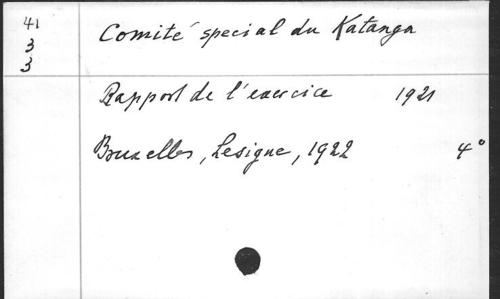 41
3
3
Comité special du Katanga
Rapport de l'exercice 1921
Bruxelles, Lesigne, 1922 4°